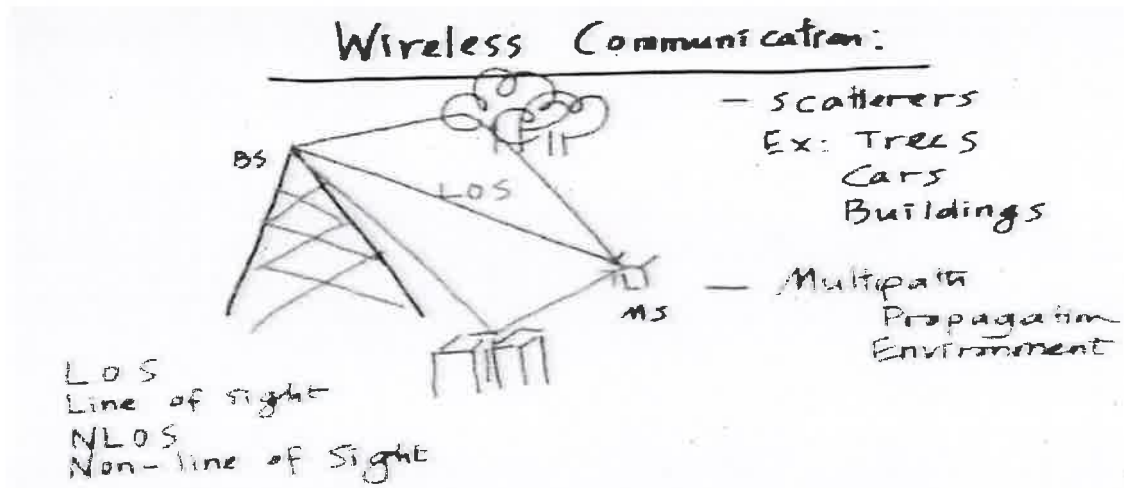 Wireless Communication:
- scatterers
Ex: Trees
Cars
Buildings
BS
LOS
MS
- Multipath
Propagation
Environment
LOS
Line of sight
NLOS
Non-line of Sight